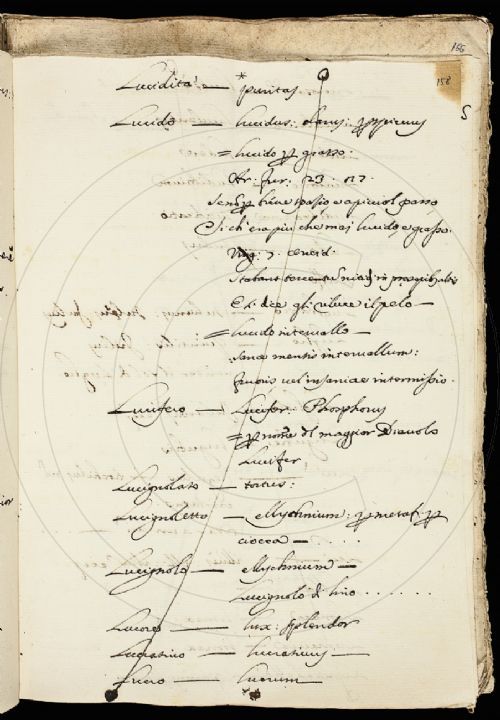 156
158
Lucidità — * puritas
Lucido — lucidus: clarus: perspicuus
= lucido per grasso.
Ar: fur: 23.
spatio e a picciol passo
Sì ch'era più che mai lucido, e grasso.
Virg: 7. Aeneid.
Stabant in praesepib: altis
E si dice gli riluce il pelo —
= lucido intervallo —
Sanae mentis intervallum:
furoris, vel insaniae intermissio.
Lucifero — Lucifer: Phosphorus
= per nome del maggior Diavolo
Lucifer
Lucignolato — tortus:
Lucignoletto — ellychnium: per metaf: per
ciocca — . . . .
Lucignolo — ellychnium —
Lucignolo di lino . . . . . . .
Lucore — lux: splendor
Lucrativo — lucrativus —
Lucro — lucrum —